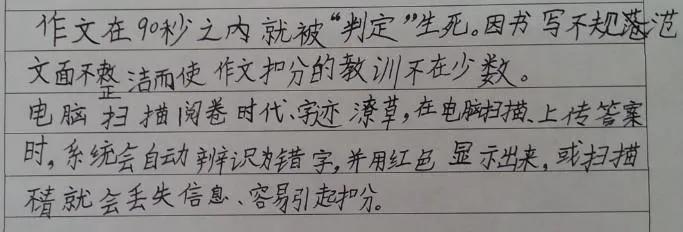 作文在90秒之内就被“判定”生死。因书写不规范
文面不整洁而使作文扣分的教训不在少数。
电脑扫描阅卷时代、字迹潦草,在电脑扫描、上传答案
时,系统会自动辨识为错字,并用红色显示出来,或扫描
不清就会丢失信息、容易引起扣分。